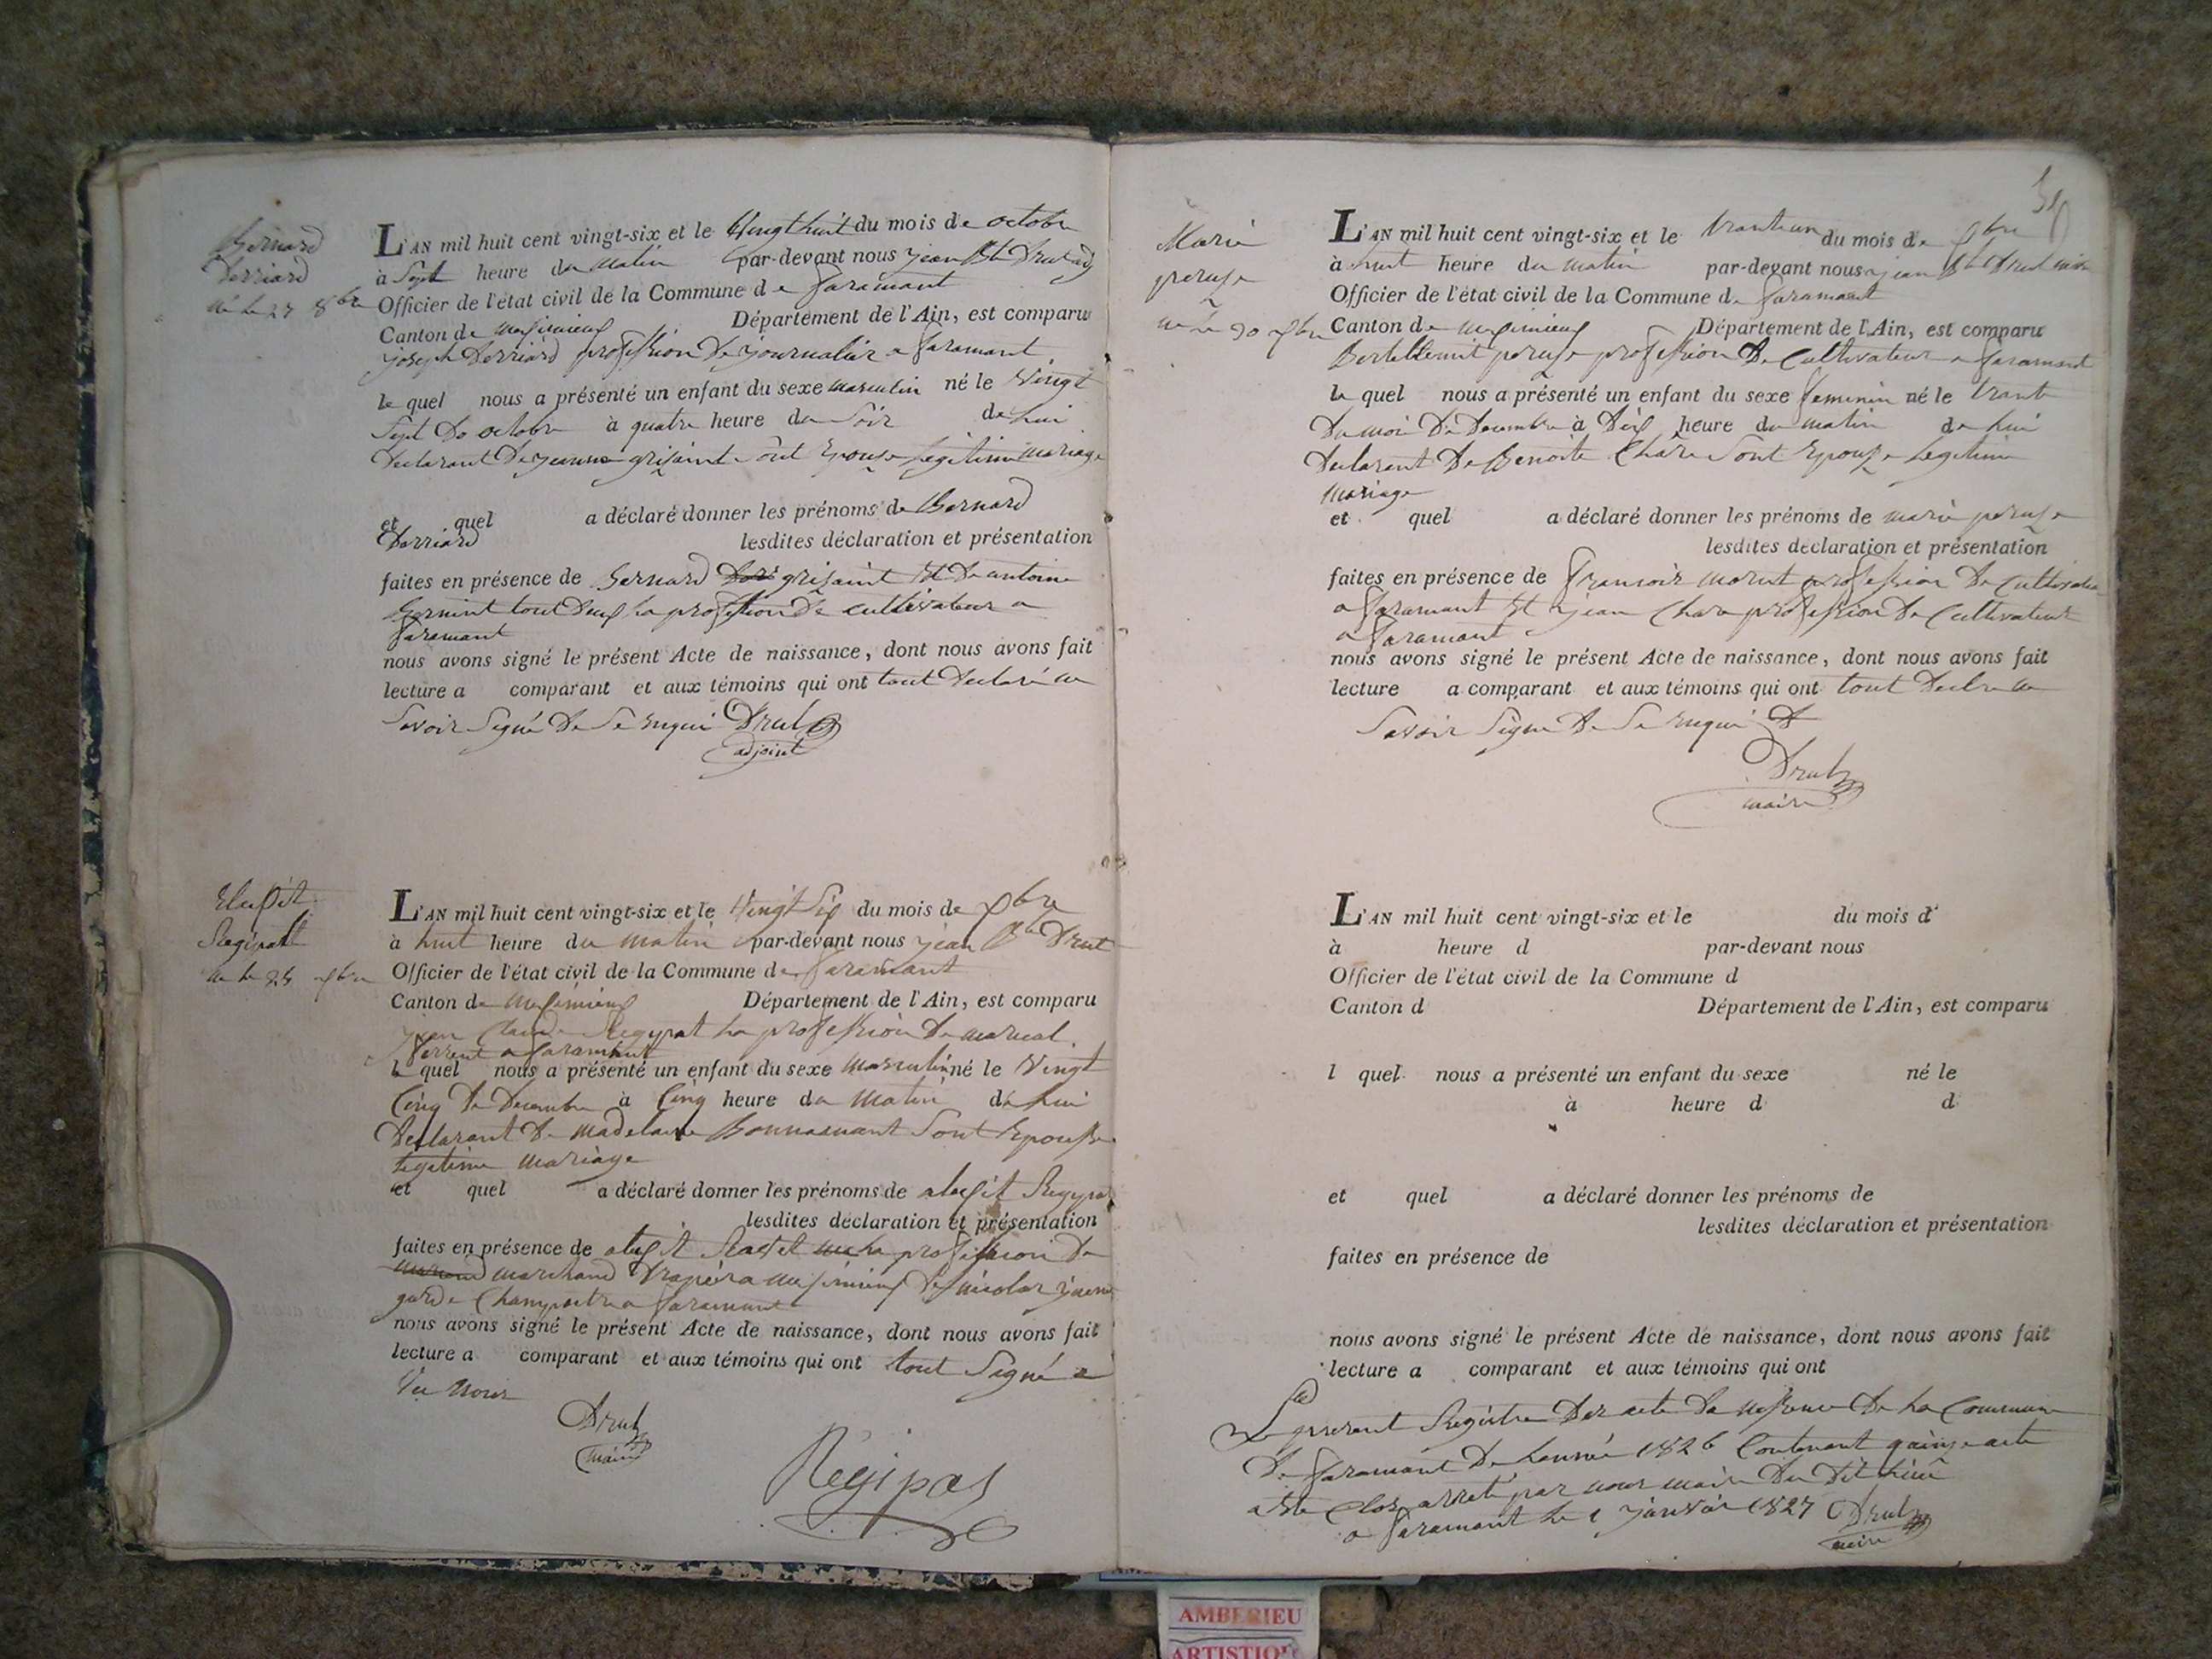 Bernard
Derriard
né le 27 8bre
L'AN mil huit cent vingt-six et le Vingt huit du mois de octobre
à Sept heure du Matin par-devant nous jean Bte Drut adj
Officier de l'état civil de la Commune de faramant
Canton de Département de l'Ain, est comparu
joseph Derriard profession De journalier a faramant
le quel nous a présenté un enfant du sexe masculin né le Vingt
Sept De octobre à quatre heure du Soir de lui
Declarant De jeanne Sont Epouse Legitime mariage
et quel a déclaré donner les prénoms de Bernard
Derriard lesdites déclaration et présentation
faites en présence de Bernard Et De antoine
tout Deux la profession De cultivateur a
faramant
nous avons signé le présent Acte de naissance, dont nous avons fait
lecture a comparant et aux témoins qui ont tout Declaré ne
Savoir Signé De Se Enqui Drut
adjoint
Regipatt
né le 25 xbre
L'AN mil huit cent vingt-six et le Vingt Six du mois de xbre
à huit heure du matin par-devant nous jean Bte Drut
Officier de l'état civil de la Commune de faramant
Canton de Département de l'Ain, est comparu
jean Claude Regypat la profession De marical
ferrent a faramant
le quel nous a présenté un enfant du sexe masculin né le Vingt
Cinq De Decembre à Cinq heure du Matin de lui
Declarant De Madelaine Sont Epousse
legitime mariage
et quel a déclaré donner les prénoms de
lesdites déclaration et présentation
faites en présence de profession De
marchand a Et nicolas
garde Champaitre a faramant
nous avons signé le présent Acte de naissance, dont nous avons fait
lecture a comparant et aux témoins qui ont tout Signé
nous
Drut
maire
Régipas
Marie
peruze
né le 30 xbre
L'AN mil huit cent vingt-six et le trante un du mois de xbre
à huit heure du matin par-devant nous jean Bte Drut maire
Officier de l'état civil de la Commune de faramant
Canton de Département de l'Ain, est comparu
peruze profession De Cultivateur a faramant
le quel nous a présenté un enfant du sexe feminin né le trante
Du moi De Decembre à Dix heure du matin de lui
Declarant De Benoite Sont Epouze Legitime
mariage
et quel a déclaré donner les prénoms de marie peruze
lesdites déclaration et présentation
faites en présence de francois profession De Cultivateur
a faramant Et jean profession De Cultivateur
a faramant
nous avons signé le présent Acte de naissance, dont nous avons fait
lecture a comparant et aux témoins qui ont tout
Savoir Signe De Se Enqui
Drut
maire
L'AN mil huit cent vingt-six et le du mois d
à heure d par-devant nous
Officier de l'état civil de la Commune d
Canton d Département de l'Ain, est comparu
l quel nous a présenté un enfant du sexe né le
à heure d d
et quel a déclaré donner les prénoms de
lesdites déclaration et présentation
faites en présence de
nous avons signé le présent Acte de naissance, dont nous avons fait
lecture a comparant et aux témoins qui ont
Le present Registre Des acte De De La Commune
De faramant De Lannée 1826 Contenant acte
a Ete Clos arreté par nous maire Du Dit
a faramant le 1 janvier 1827 Drut
maire
AMBERIEU